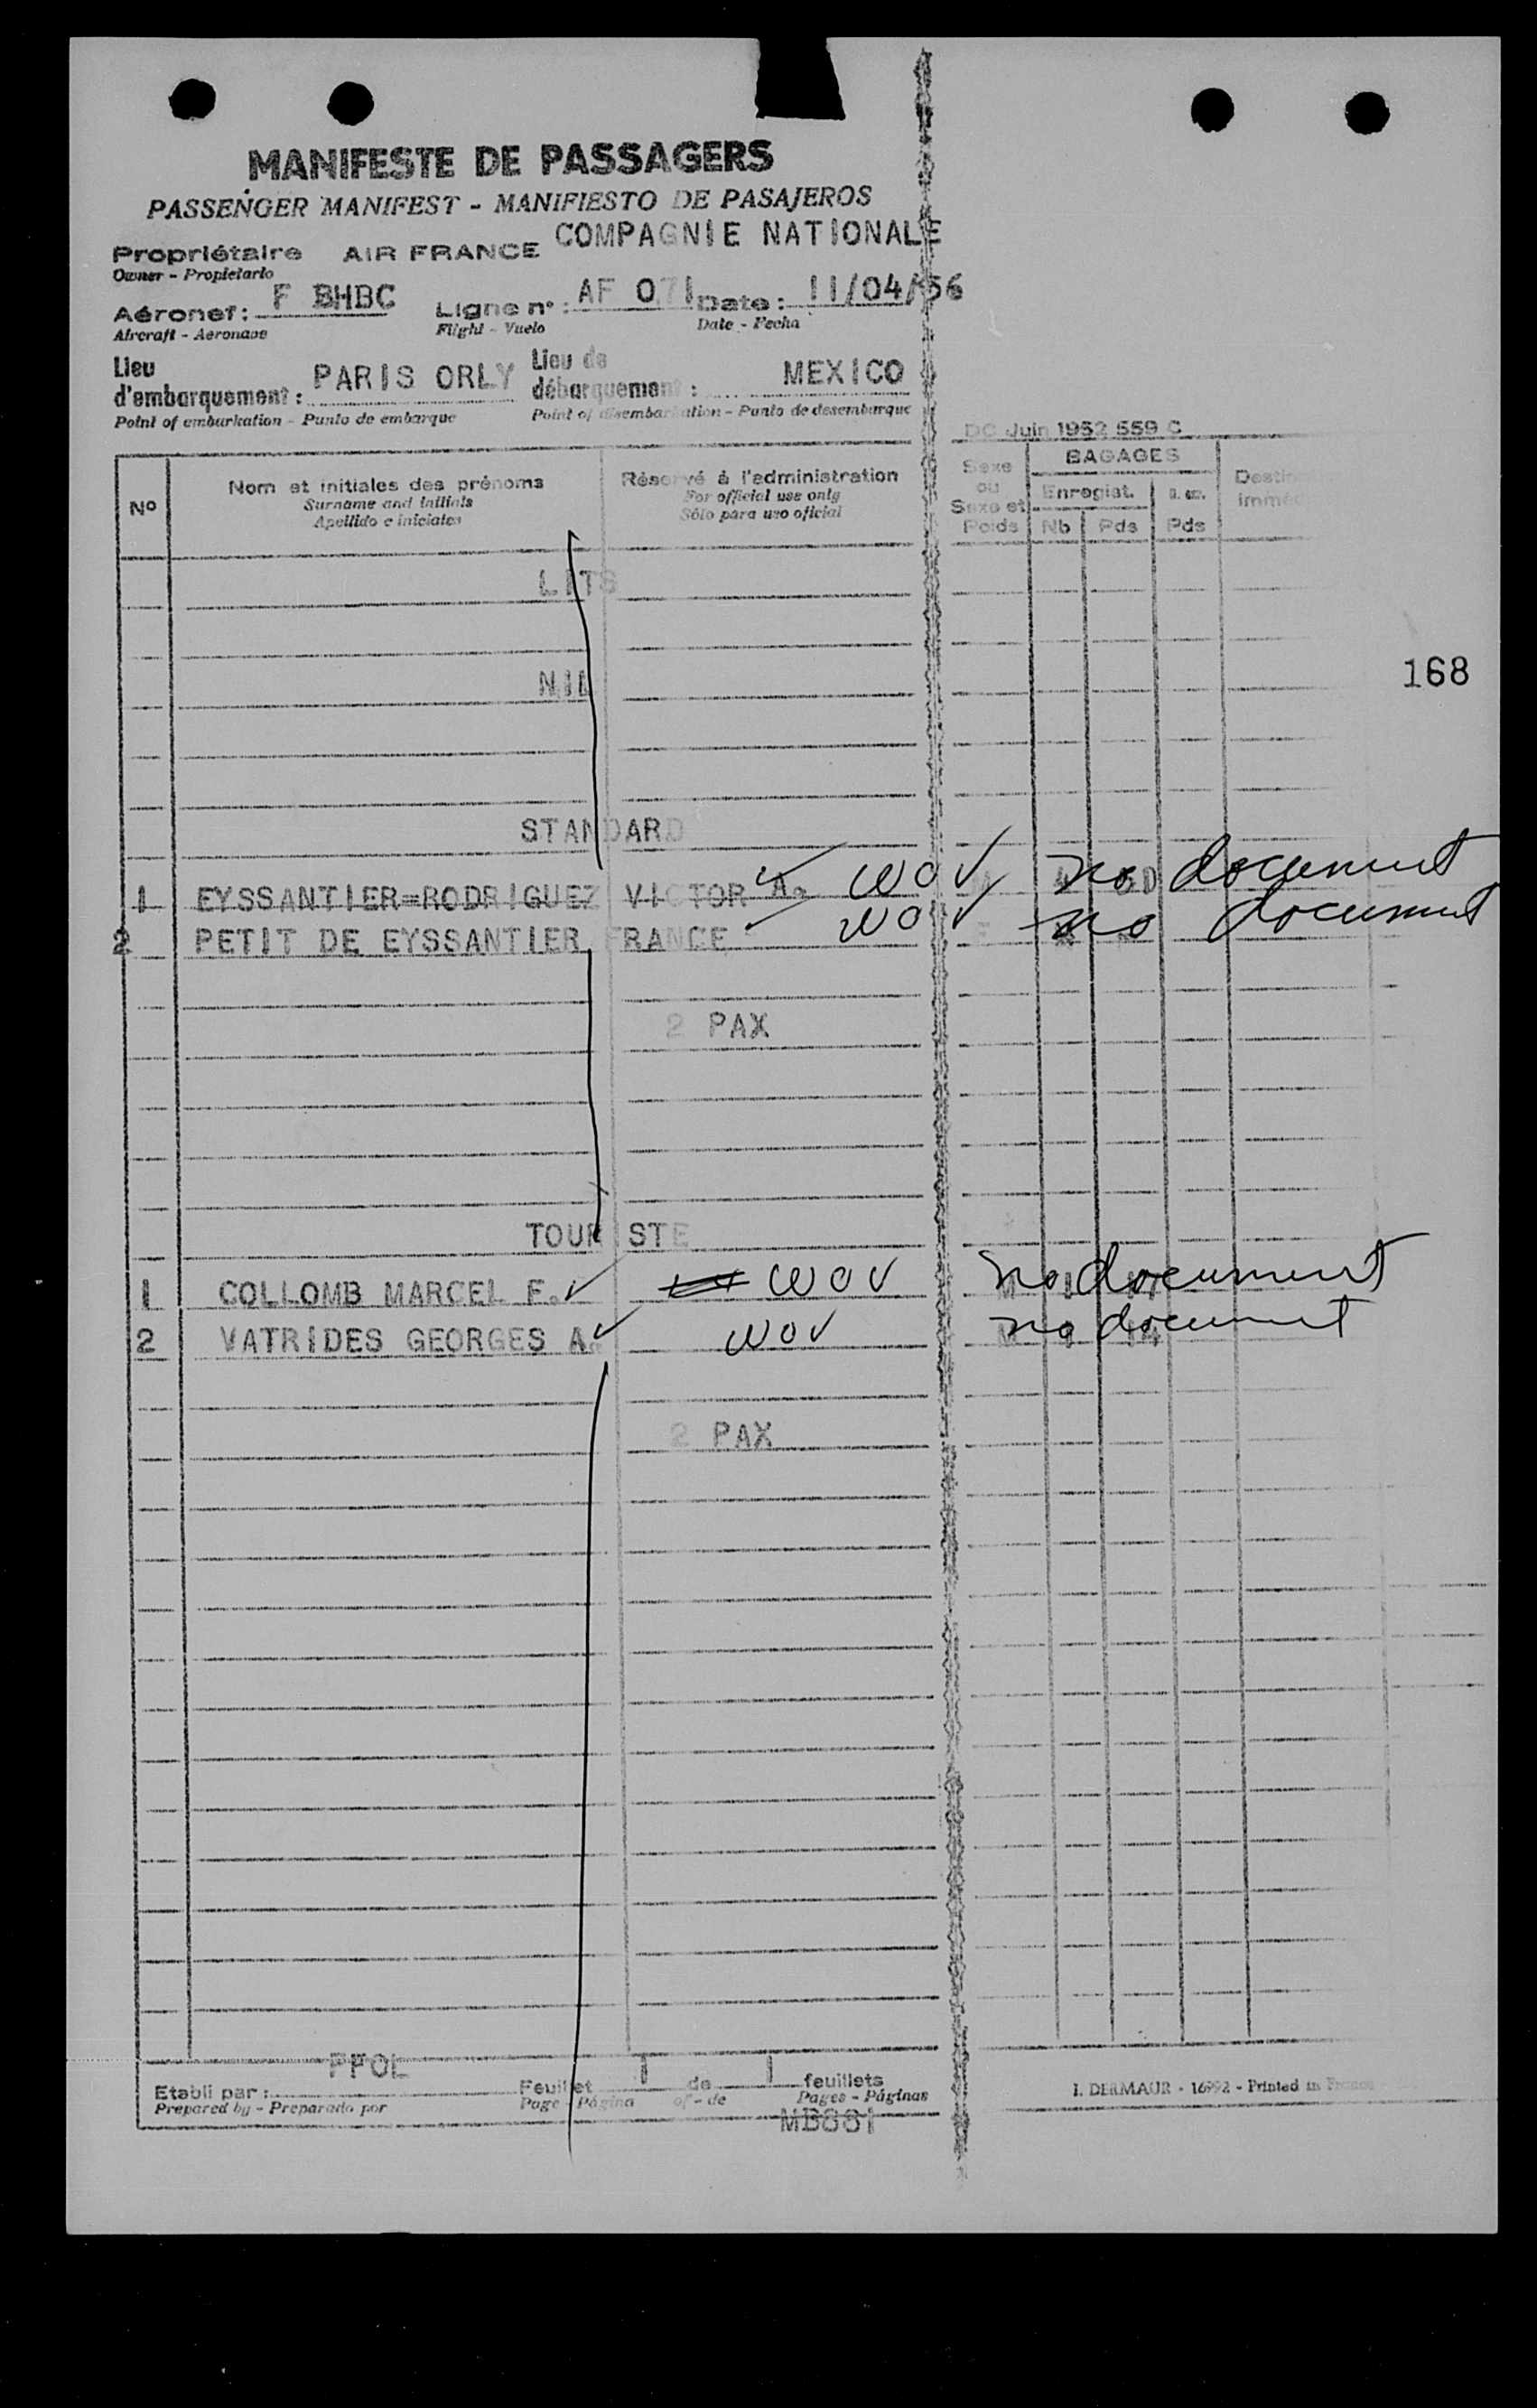 MANIFESTE DE PASSAGERS
PASSENGER MANIFEST - MANIFIESTO DE PASAJEROS
Propriétaire AIR FRANCE COMPAGNIE NATIONALE
Owner - Propietario
Aéronef: F BHBC Ligne nº: AF 071 Date: 11/04/56
Aircraft - Aeronave Flight - Vuelo Date - Fecha
Lieu d'embarquement: PARIS ORLY Lieu de débarquement: MEXICO
Point of embarkation - Punto de embarque Point of disembarkation - Punto de desembarque
DC Juin 1952 559 C
Nº Nom et initiales des prénoms Réservé à l'administration Sexe ou Sexe et Poids BAGAGES
Surname and initials For official use only Enregist.
Apellido e iniciales Sólo para uso oficial Nb Pds Pds
LITS
NIL
168
STANDARD
1 EYSSANTIER=RODRIGUEZ VICTOR A. ✓ WOV no document
2 PETIT DE EYSSANTIER FRANCE ✓ WOV no document
2 PAX
TOURISTE
1 COLLOMB MARCEL F. ✓ WOV no document
2 VATRIDES GEORGES A. ✓ WOV no document
2 PAX
Etabli par: Feuillet 1 de 1 feuillets
Prepared by - Preparado por Page - Página of - de Pages - Páginas
MB881
I. DERMAUR - Printed in France